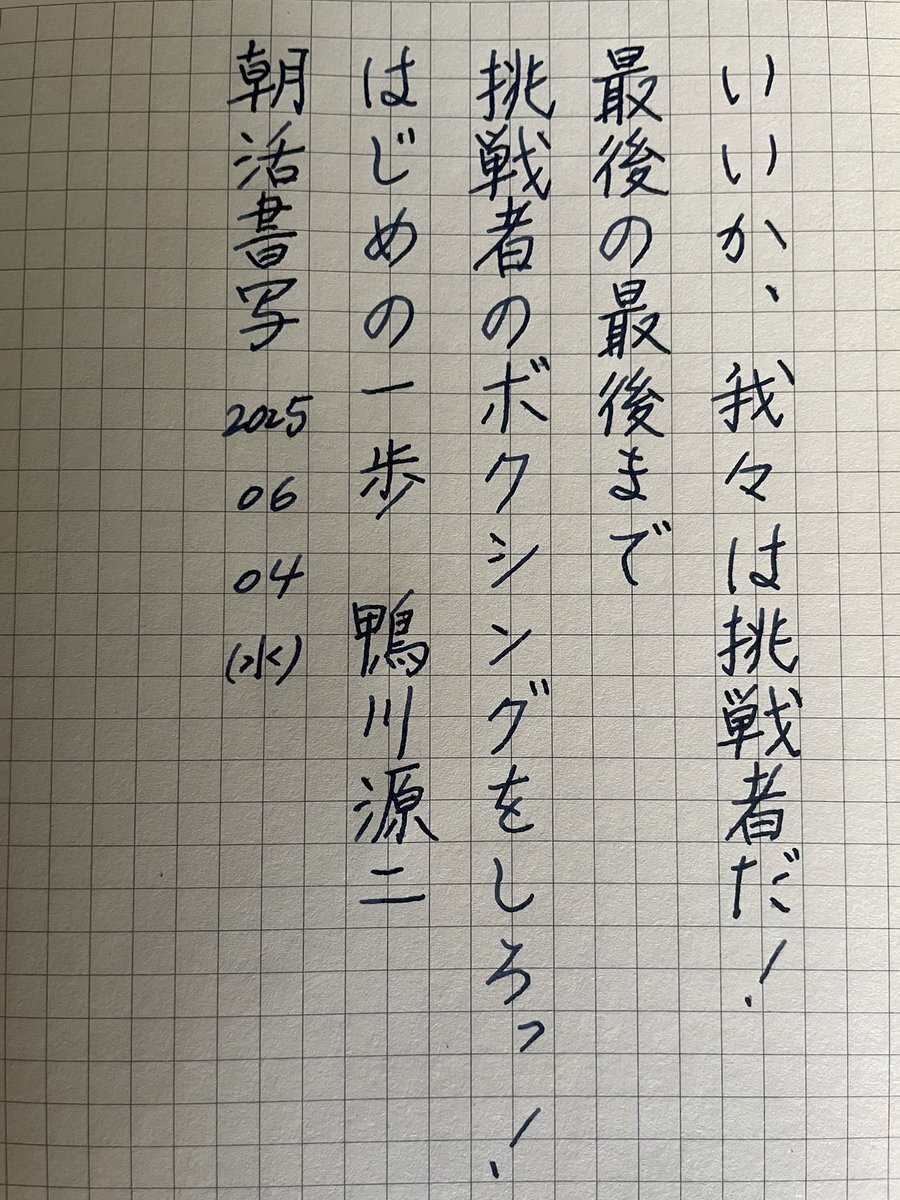 いいか、我々は挑戦者だ！
最後の最後まで
挑戦者のボクシングをしろっ！
はじめの一歩　鴨川源二
朝活書写 2025 06 04 (水)